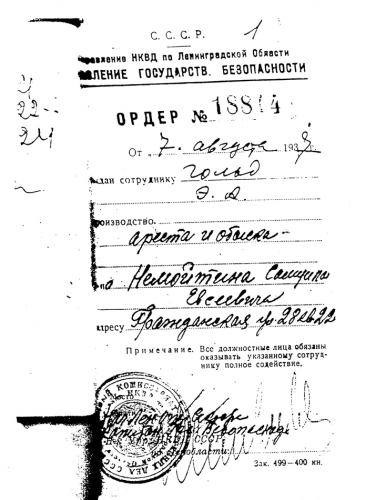 С. С. С. Р. 1
равление НКВД по Ленинградской Области
ВЛЕНИЕ ГОСУДАРСТВ. БЕЗОПАСНОСТИ
ОРДЕР № 18814
От 7. августа 1938 г.
ыдан сотруднику Гольд
Э. А.
роизводство
ареста и обыска
по Немойтина Самуила
Евсеевича
адресу Гражданская ул 28 кв 22
Примечание. Все должностные лица обязаны
оказывать указанному сотруд-
нику полное содействие.
Зак. 499—400 кн.